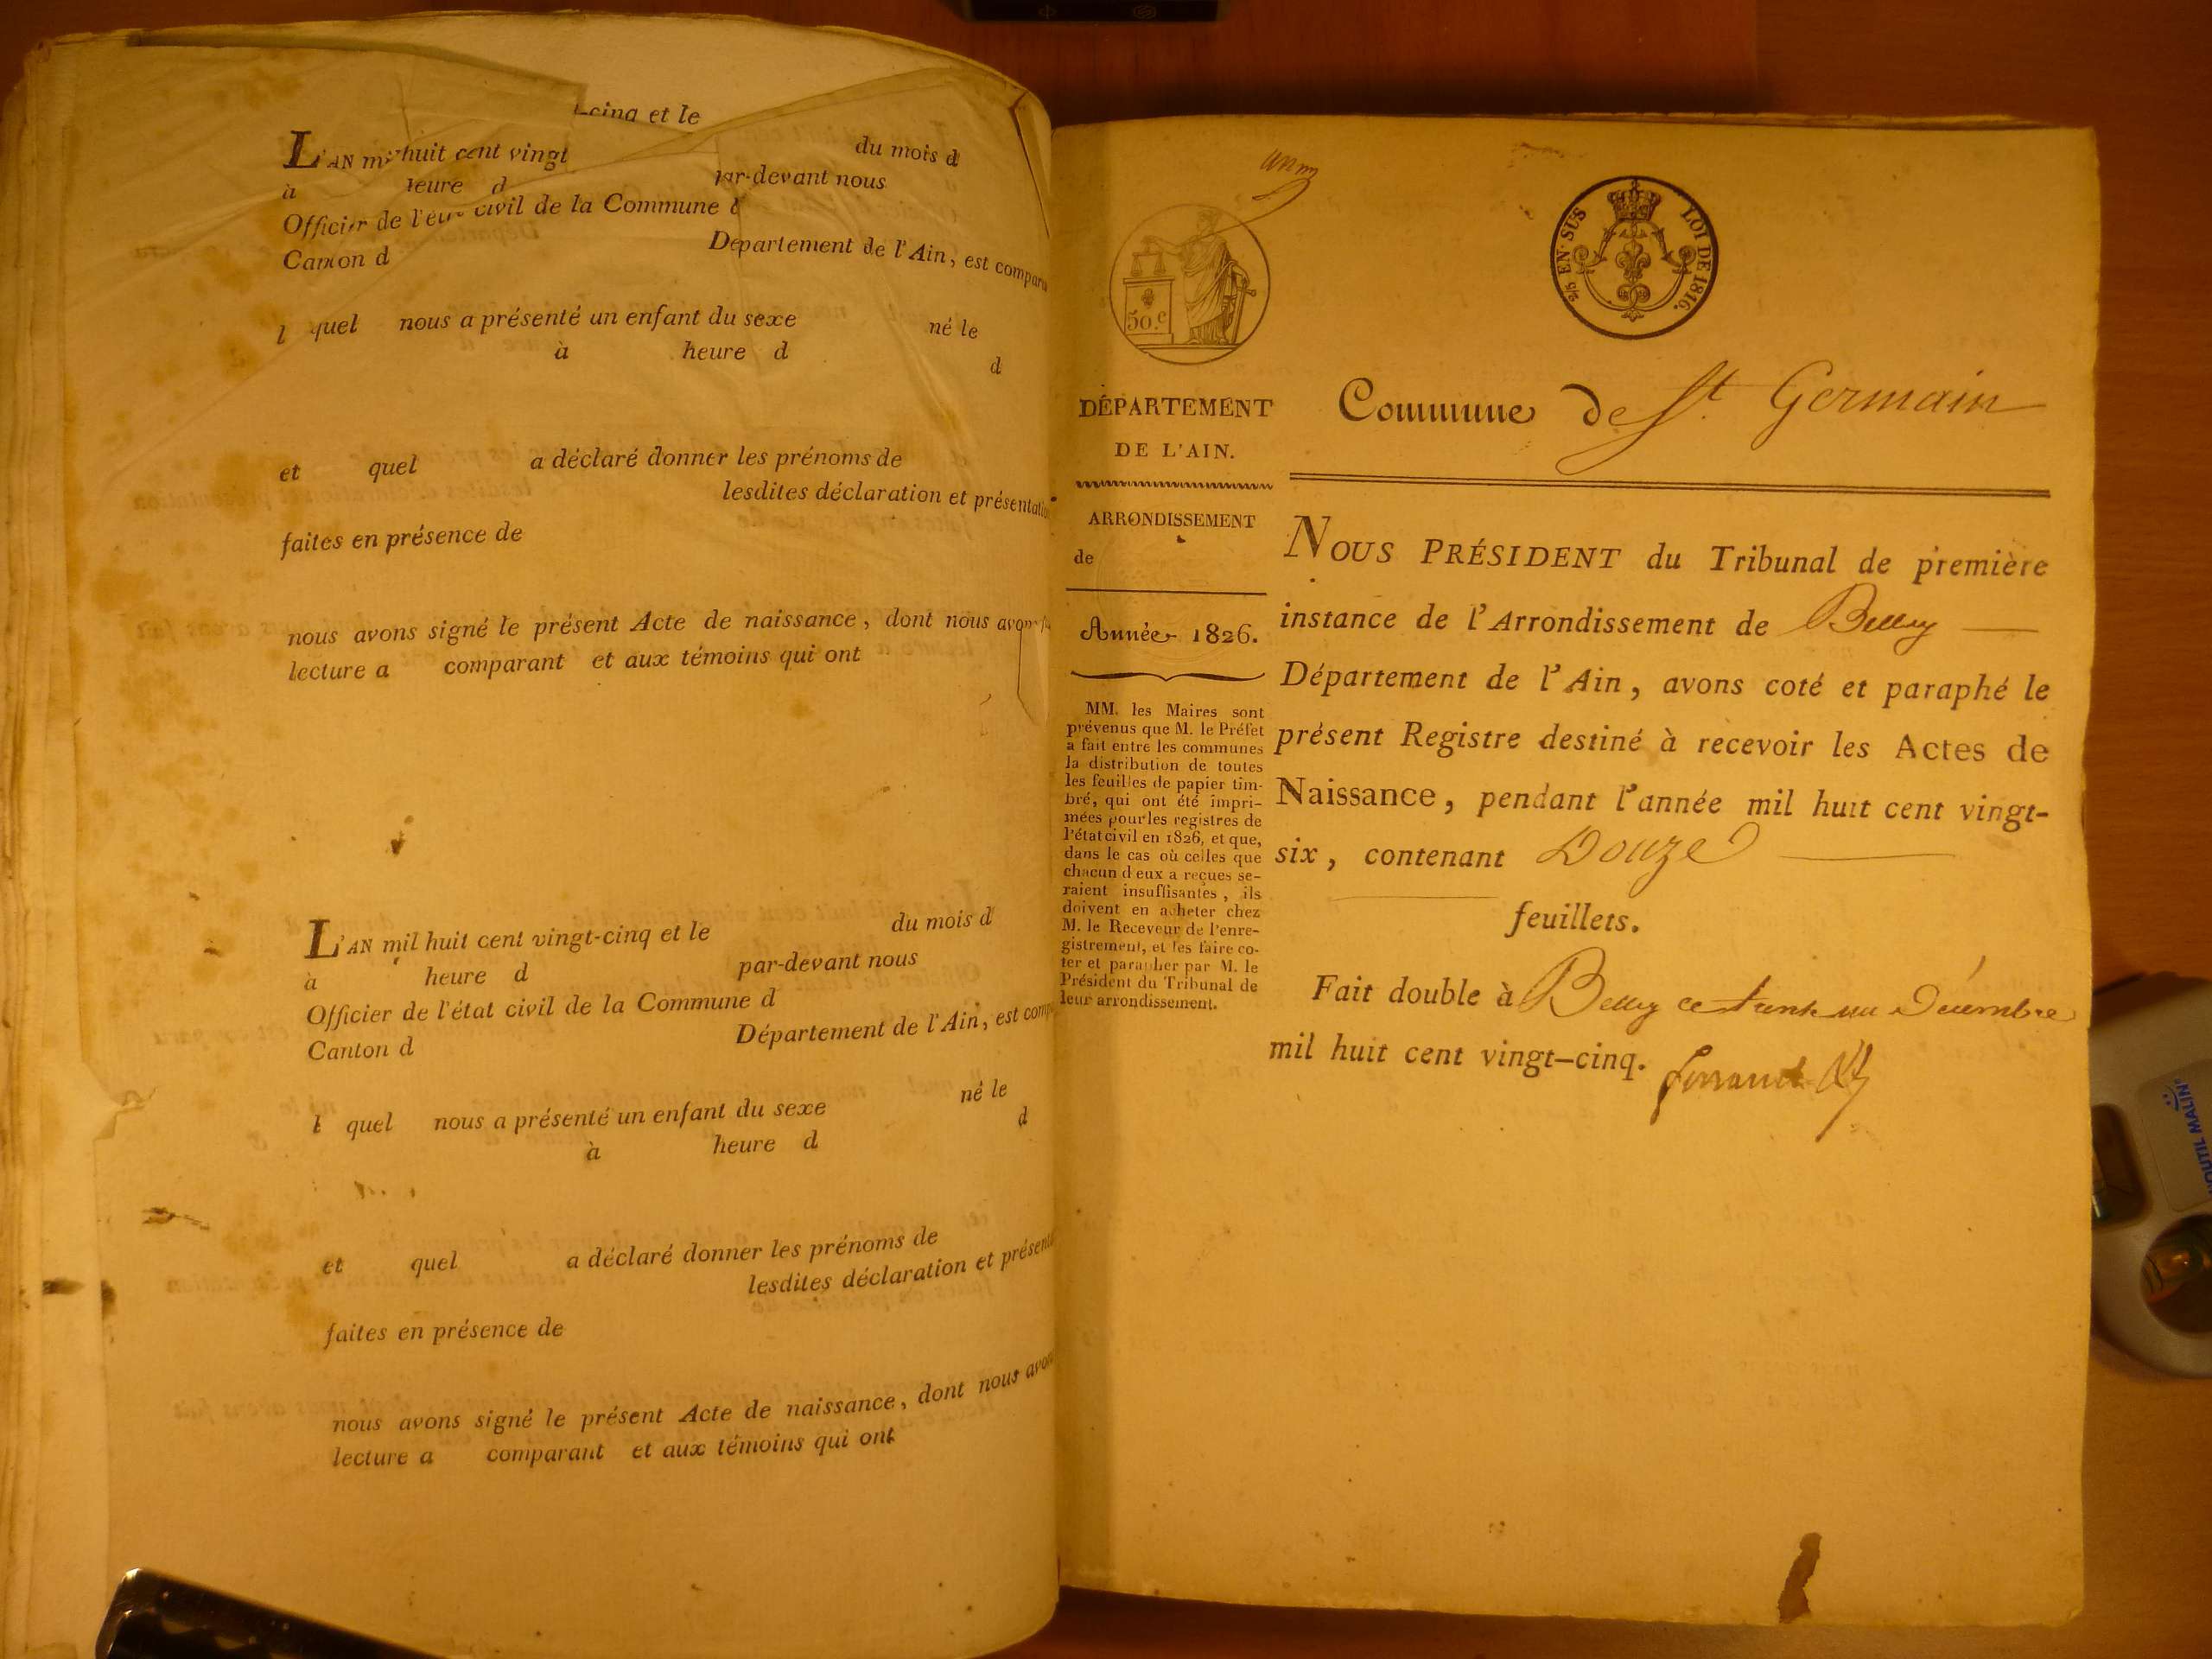 -cinq et le
L'AN mil huit cent vingt
du mois d
à heure d par-devant nous
Officier de l'état civil de la Commune d
Canton d Département de l'Ain, est comparu
l quel nous a présenté un enfant du sexe né le
à heure d
d
et quel a déclaré donner les prénoms de
lesdites déclaration et présentation
faites en présence de
nous avons signé le présent Acte de naissance, dont nous avons
lecture a comparant et aux témoins qui ont
L'AN mil huit cent vingt-cinq et le du mois d
à heure d par-devant nous
Officier de l'état civil de la Commune d
Canton d Département de l'Ain, est comp
l quel nous a présenté un enfant du sexe né le
à heure d d
et quel a déclaré donner les prénoms de
lesdites déclaration et présent
faites en présence de
nous avons signé le présent Acte de naissance, dont nous avons
lecture a comparant et aux témoins qui ont
50.c
2/5 EN SUS LOI DE 1816.
DÉPARTEMENT
DE L'AIN.
ARRONDISSEMENT
de
Année 1826.
MM. les Maires sont
prévenus que M. le Préfet
a fait entre les communes
la distribution de toutes
les feuilles de papier tim-
bré, qui ont été impri-
mées pour les registres de
l'état civil en 1826, et que,
dans le cas où celles que
chacun d'eux a reçues se-
raient insuffisantes, ils
doivent en acheter chez
M. le Receveur de l'enre-
gistrement, et les faire co-
ter et parapher par M. le
Président du Tribunal de
leur arrondissement.
Commune de St. Germain
NOUS PRÉSIDENT du Tribunal de première
instance de l'Arrondissement de Belley
Département de l'Ain, avons coté et paraphé le
présent Registre destiné à recevoir les Actes de
Naissance, pendant l'année mil huit cent vingt-
six, contenant Douze
feuillets.
Fait double à Belley ce trente un Décembre
mil huit cent vingt-cinq.
OUTIL MALIN